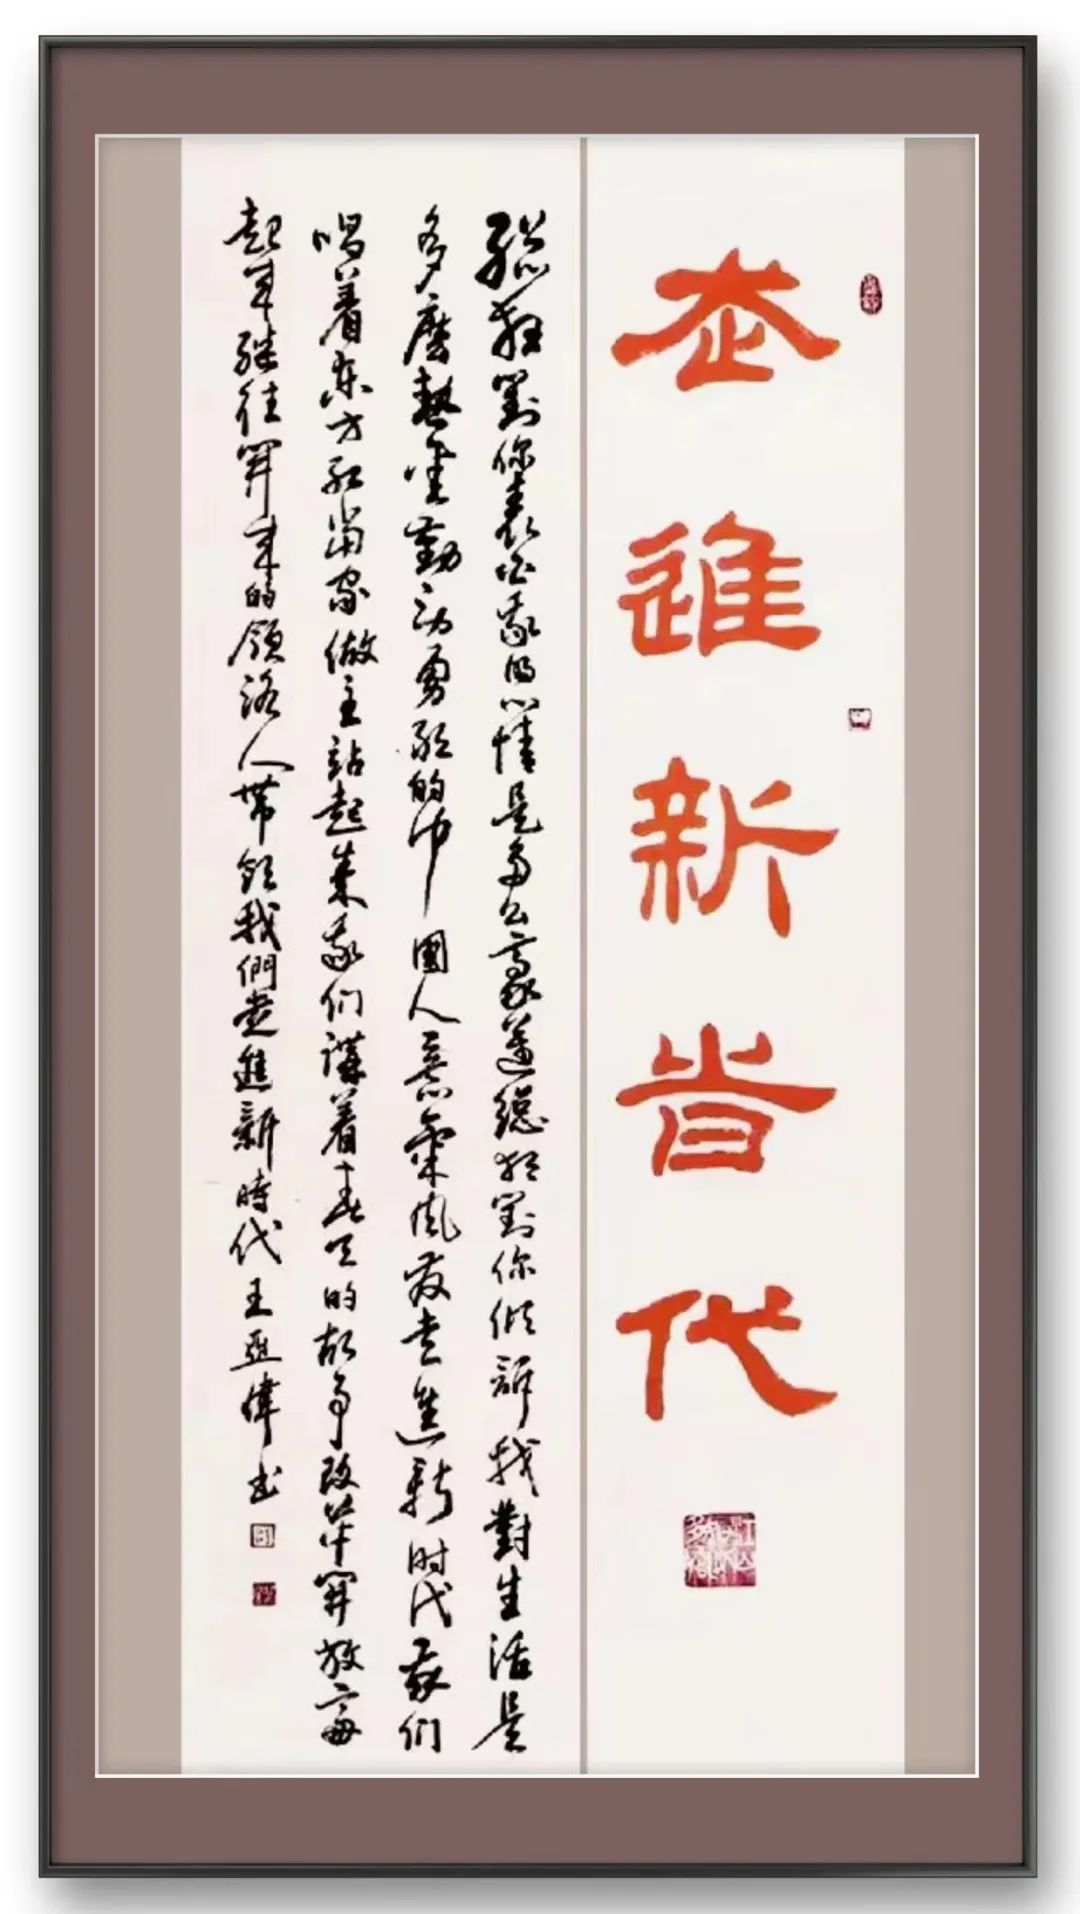 走進新時代
总想對你表白我的心情是多么豪邁總想對你傾訴我對生活是
多麼熱爱勤劳勇敢的中國人意氣风发走進新时代我们
唱着東方红当家做主站起来我们講着春天的故事改革開放富
起来継往開来的領路人带領我們走進新時代王亚偉书